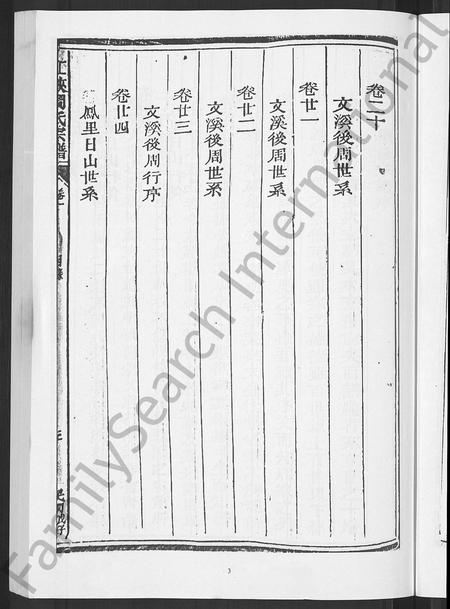 卷二十
文溪後周世系
卷廿一
文溪後周世系
卷廿二
文溪後周世系
卷廿三
文溪後周行序
卷廿四
鳳里日山世系
周氏宗譜
卷一
目錄
三
3
FamilySearch International